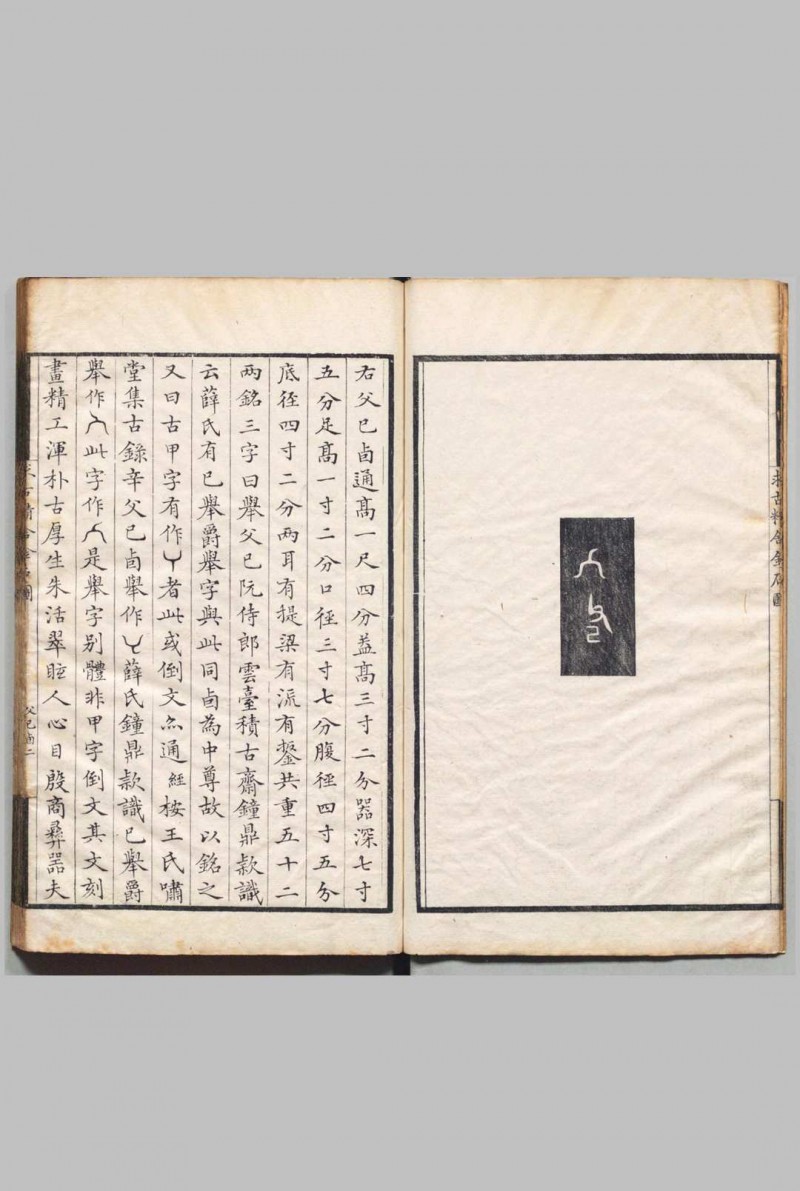 求古精舍金石圖
右父已卣通高一尺四分蓋高三寸二分器深七寸
五分足高一寸二分口徑三寸七分腹徑四寸五分
底徑四寸二分兩耳有提梁有流有鋬共重五十二
兩銘三字曰舉父已阮侍郎雲臺積古齋鐘鼎款識
云薛氏有已舉爵舉字與此同卣為中尊故以銘之
又曰古甲字有作者此或倒文亦通經桉王氏嘯
堂集古錄辛父已卣舉作薛氏鐘鼎款識已舉爵
舉作此字作是舉字別體非甲字倒文其文刻
畫精工渾朴古厚生朱活翠眶人心目殷商彞器夫
求古精舍金石圖
父已卣二